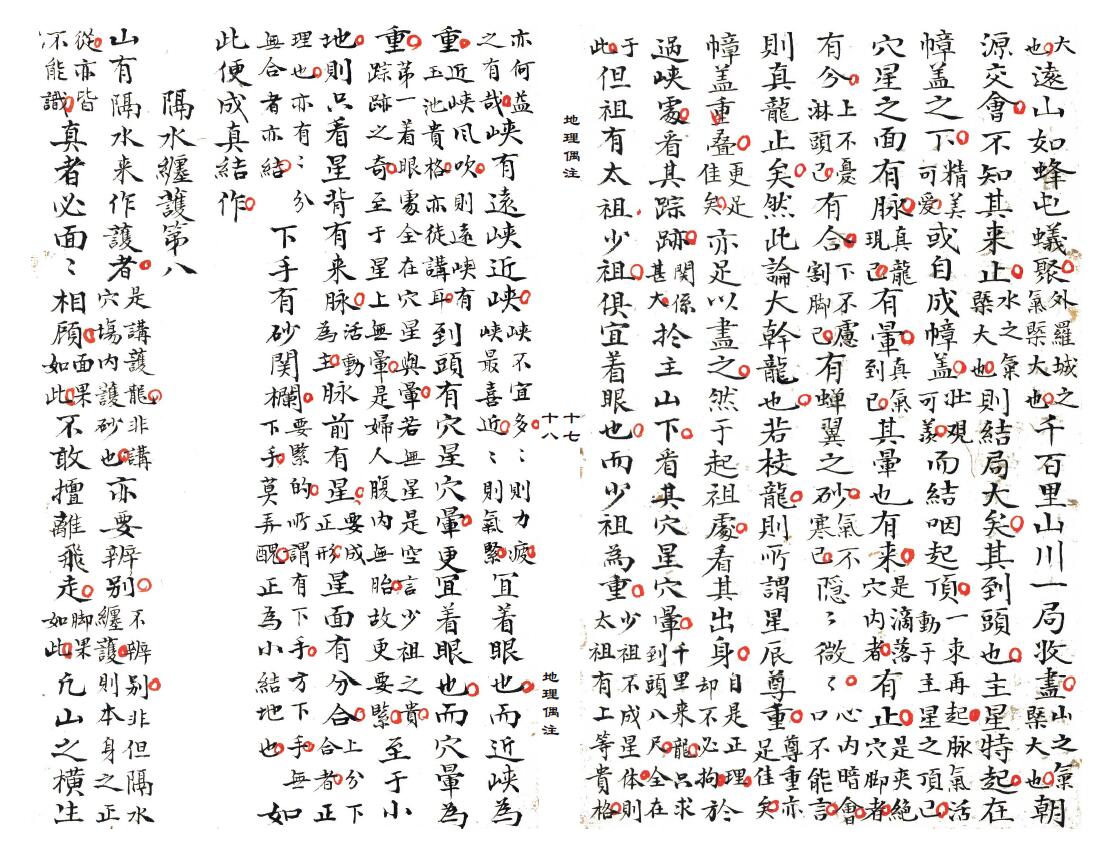 大也遠山如蜂屯蟻聚外羅城之氣槩大也千百里山川一局收盡山之氣槩大也朝
源交會不知其来止水之氣槩大也則結局大矣其到頭也主星特起在
幛盖之下精美可愛或自成幛盖壯观可羨而結咽起頂一束再起脉氣活動于主星之頂已
穴星之面有脉真龍現已有暈真氣到已其暈也有来是滴落穴内者有止是夹絶穴脚者
有分上不憂淋頭已有合下不慮割脚已有蝉翼之砂氣不寒已隐〻微〻心内暗會口不能言
則真龍止矣然此論大幹龍也若枝龍則所謂星辰尊重尊重亦足佳矣
幛盖重疊更足佳矣亦足以盡之然于起祖處看其出身自是正理今却不必拘於
過峡處看其踪跡関係甚大扵主山下看其穴星穴暈千里来龍只求到頭八尺全在
于此但祖有太祖少祖俱宜着眼也而少祖為重少祖不成星体則太祖有上等貴格
地理偶注
十七
亦何益之有哉峡有遠峡近峡峡不宜多〻則力疲峡最喜近〻則氣緊宜着眼也而近峡為
重近峡風吹則遠峡有玉池貴格亦徒講耳到頭有穴星穴暈更宜着眼也而穴暈為
重第一着眼處全在穴星與暈若無星是空言少祖之貴踪跡之奇至于星上無暈是婦人腹内無胎故更要緊至于小
地則只看星背有来脉活動為主脉前有星要成正形星面有分合上分下合者正
理也亦有〻分無合者亦結下手有砂関欄要緊的所謂有下手方下手無下手莫弄醜正為小結地也如
此便成真結作
隔水纏護第八
山有隔水来作護者是講護龍非講穴塲内護砂也亦要辨别不辨别非但隔水纏護則本身之正
從亦皆不能識真者必面〻相顧面果如此不敢擅離飛走脚果如此凢山之横生
地理偶注
十八